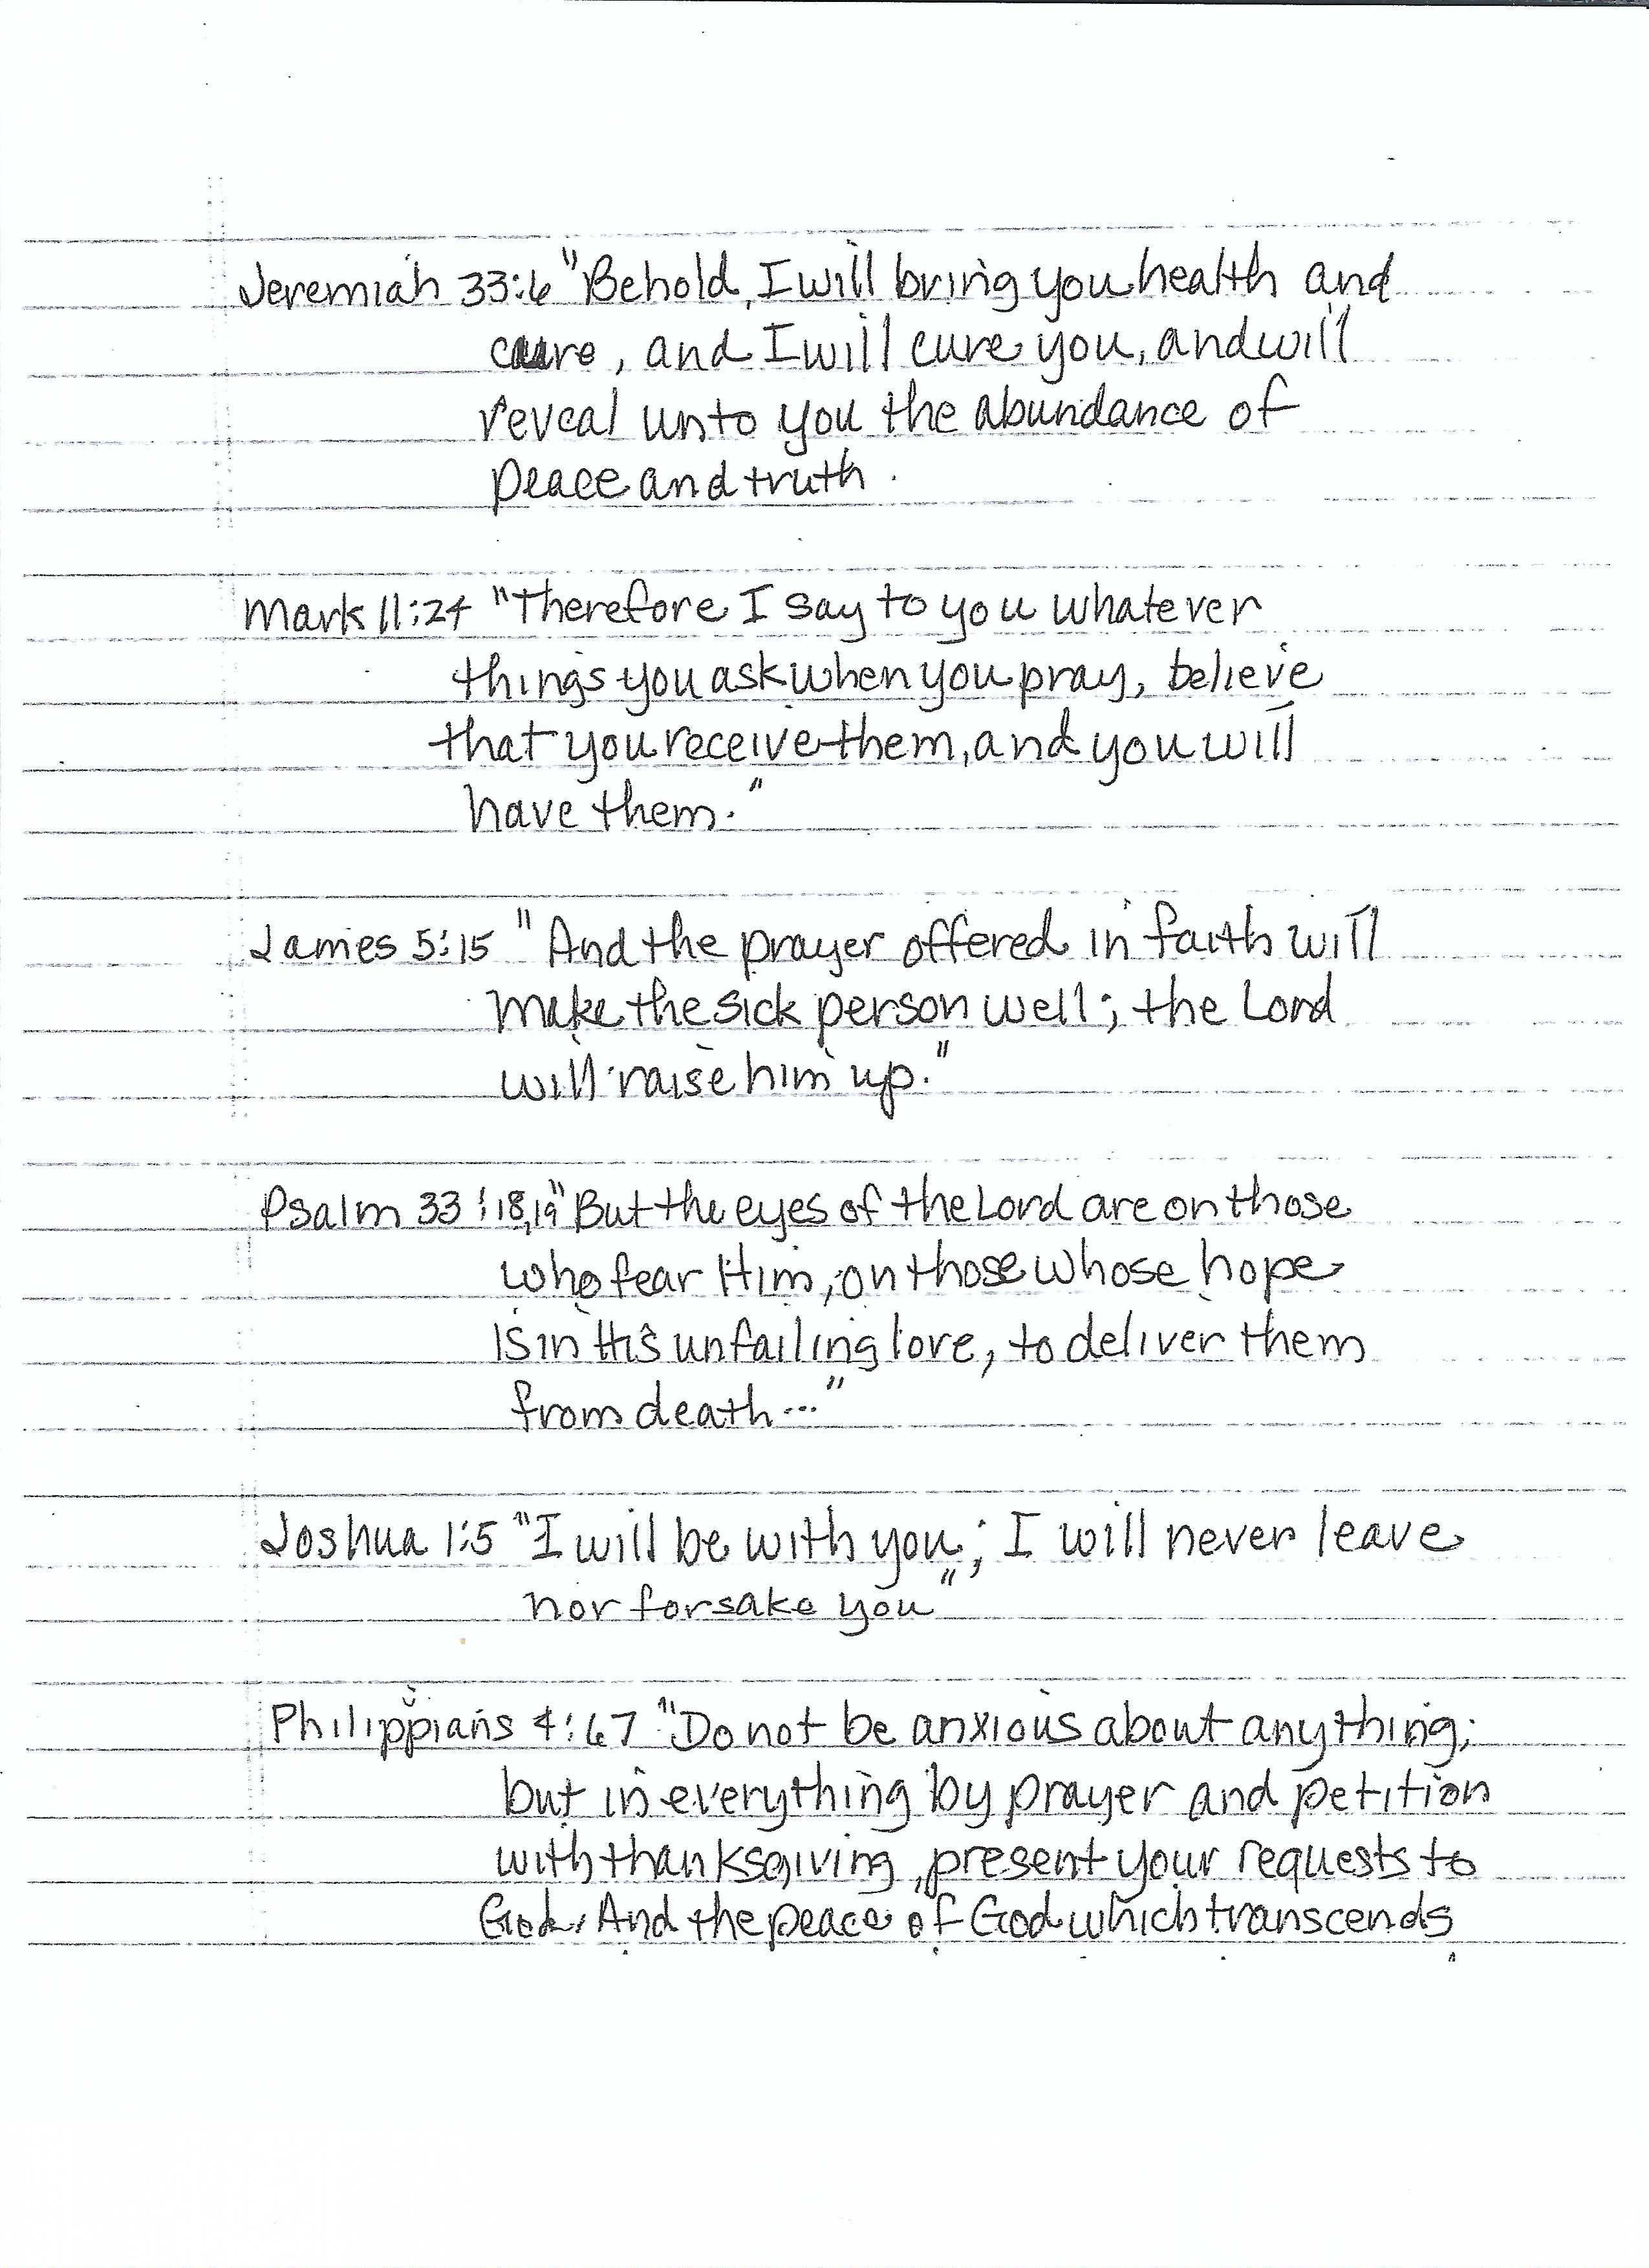 Jeremiah 33:6 "Behold, I will bring you health and
cure, and I will cure you, and will
reveal unto you the abundance of
peace and truth.
Mark 11:24 "Therefore I say to you whatever
things you ask when you pray, believe
that you receive them, and you will
have them."
James 5:15 "And the prayer offered in faith will
make the sick person well; the Lord
will raise him up."
Psalm 33:18,19 "But the eyes of the Lord are on those
who fear Him, on those whose hope
is in His unfailing love, to deliver them
from death..."
Joshua 1:5 "I will be with you; I will never leave
nor forsake you"
Philippians 4:67 "Do not be anxious about anything;
but in everything by prayer and petition
with thanksgiving, present your requests to
God. And the peace of God which transcends